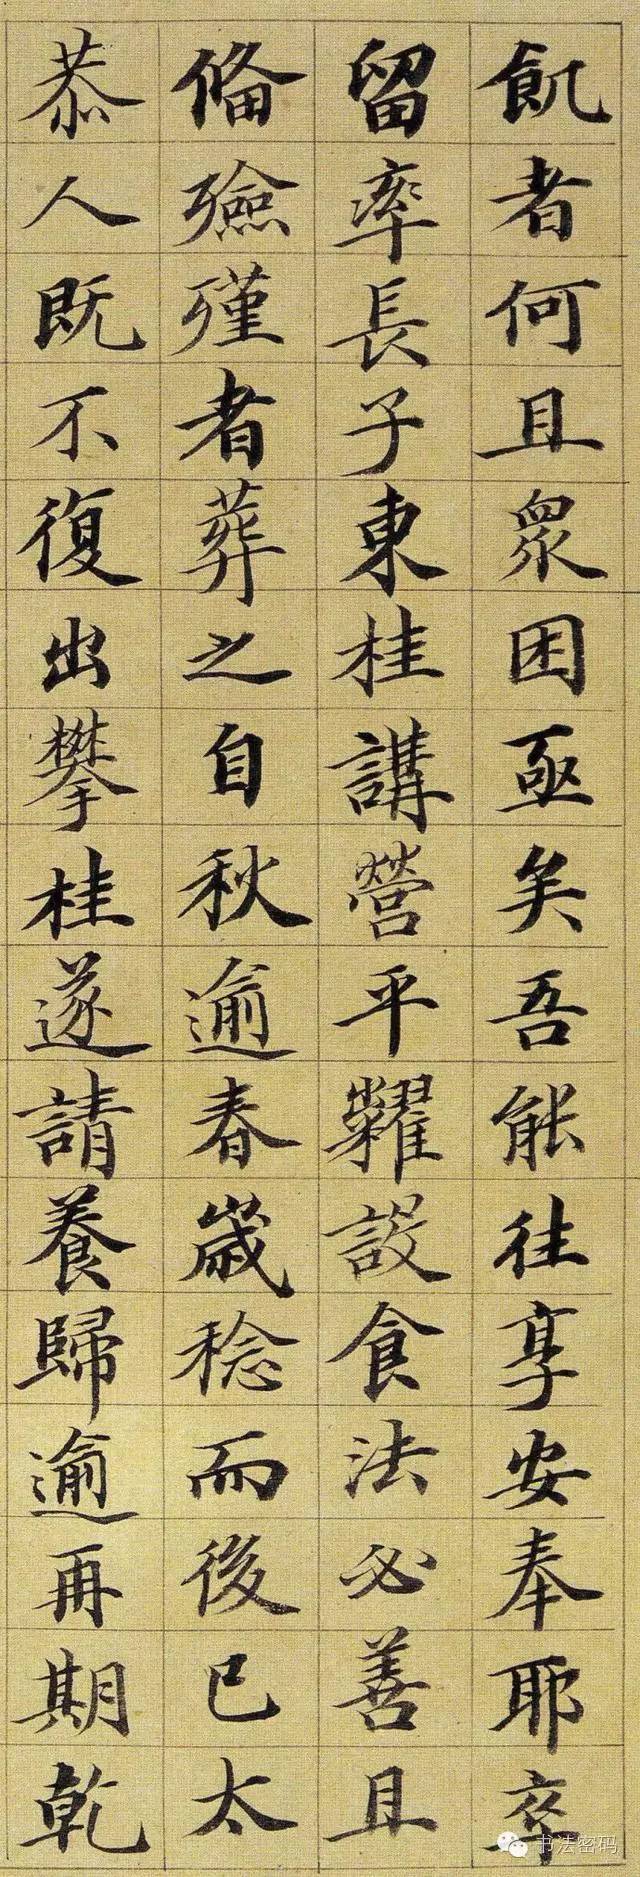 飢者何且眾困亟矣吾能往享安奉耶卒
留率長子東桂講營平糶設食法必善且
備殮殣者葬之自秋逾春歲稔而後已太
恭人既不復出攀桂遂請養歸逾再期乾
书法密码